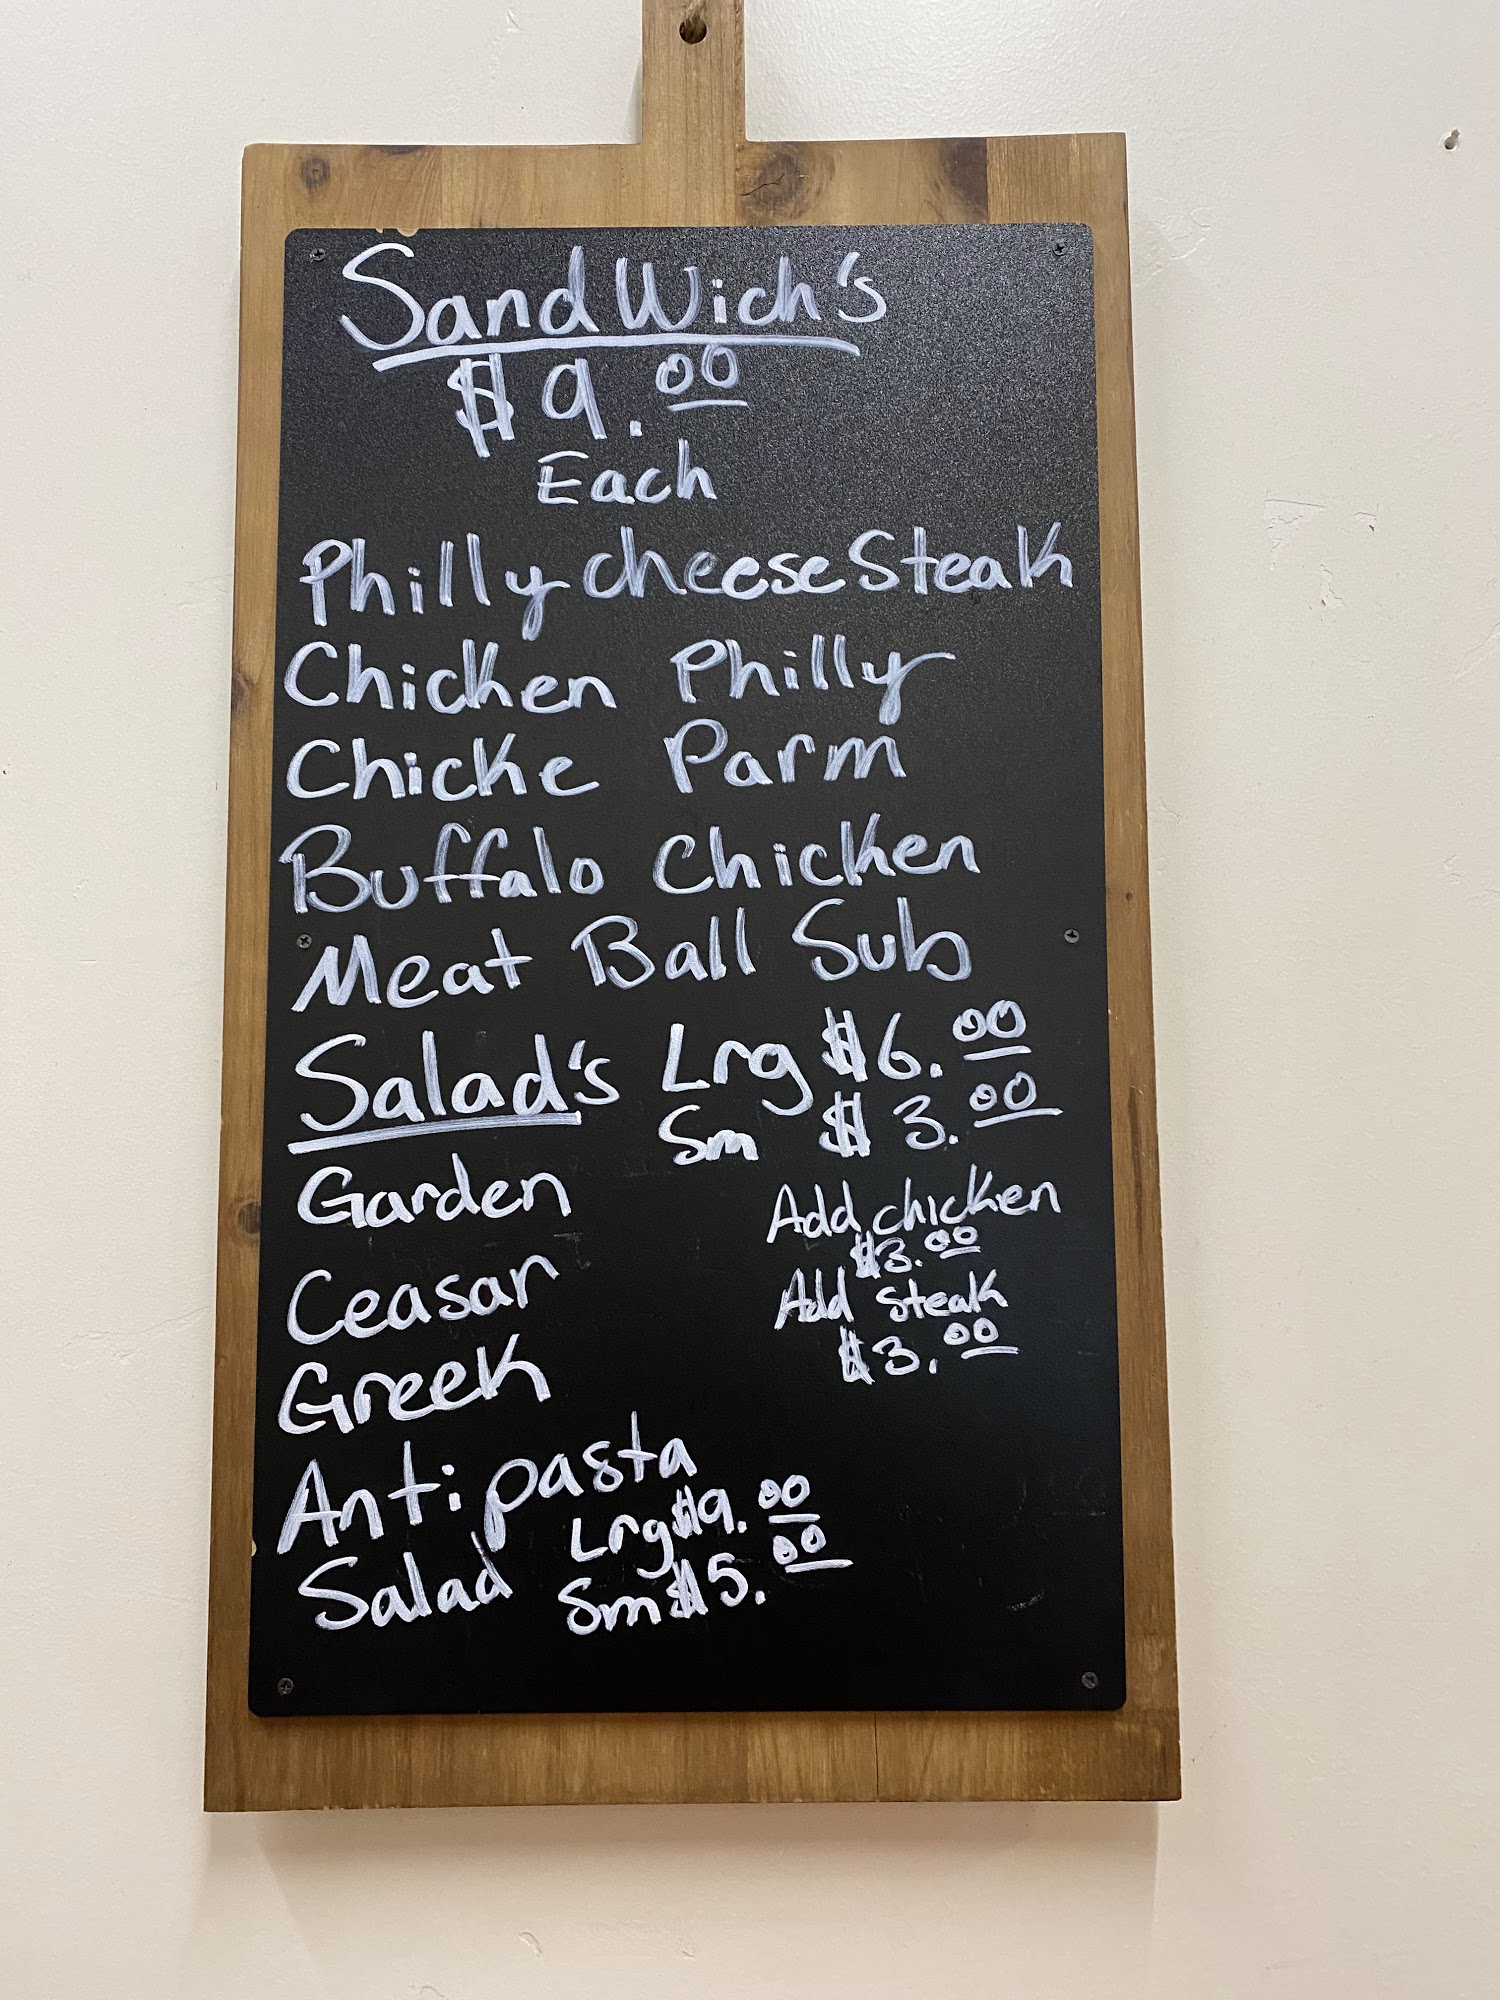 SandWich's
$9.00
Each
Philly cheese Steak
Chicken Philly
Chicke Parm
Buffalo Chicken
Meat Ball Sub
Salad's Lrg $6.00
Sm $3.00
Garden
Add chicken
$3.00
Ceasar
Add steak
$3.00
Greek
Antipasta
Salad Lrg $9.00
Sm $5.00